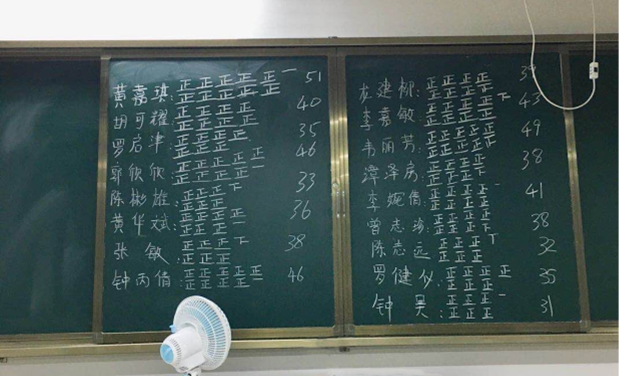 黄嘉琪:正正正正正正正正正正一 51
胡可耀:正正正正正正正正 40
罗启津:正正正正正正正 35
郭欣欣:正正正正正正正正正一 46
陈彬雄:正正正正正正下 33
黄华斌:正正正正正正正一 36
张敏:正正正正正正正下 38
钟丙倩:正正正正正正正正正一 46
建柳:正正正正正正正正
李嘉敏:正正正正正正正正下 43
韦丽芳: 49
泽房: 38
李婉倩:正正正正正正正正一 41
曾志珍: 38
陈志远:正正正正正正丁 32
罗健仪:正正正正正正正 35
钟昊:正正正正正正一 31